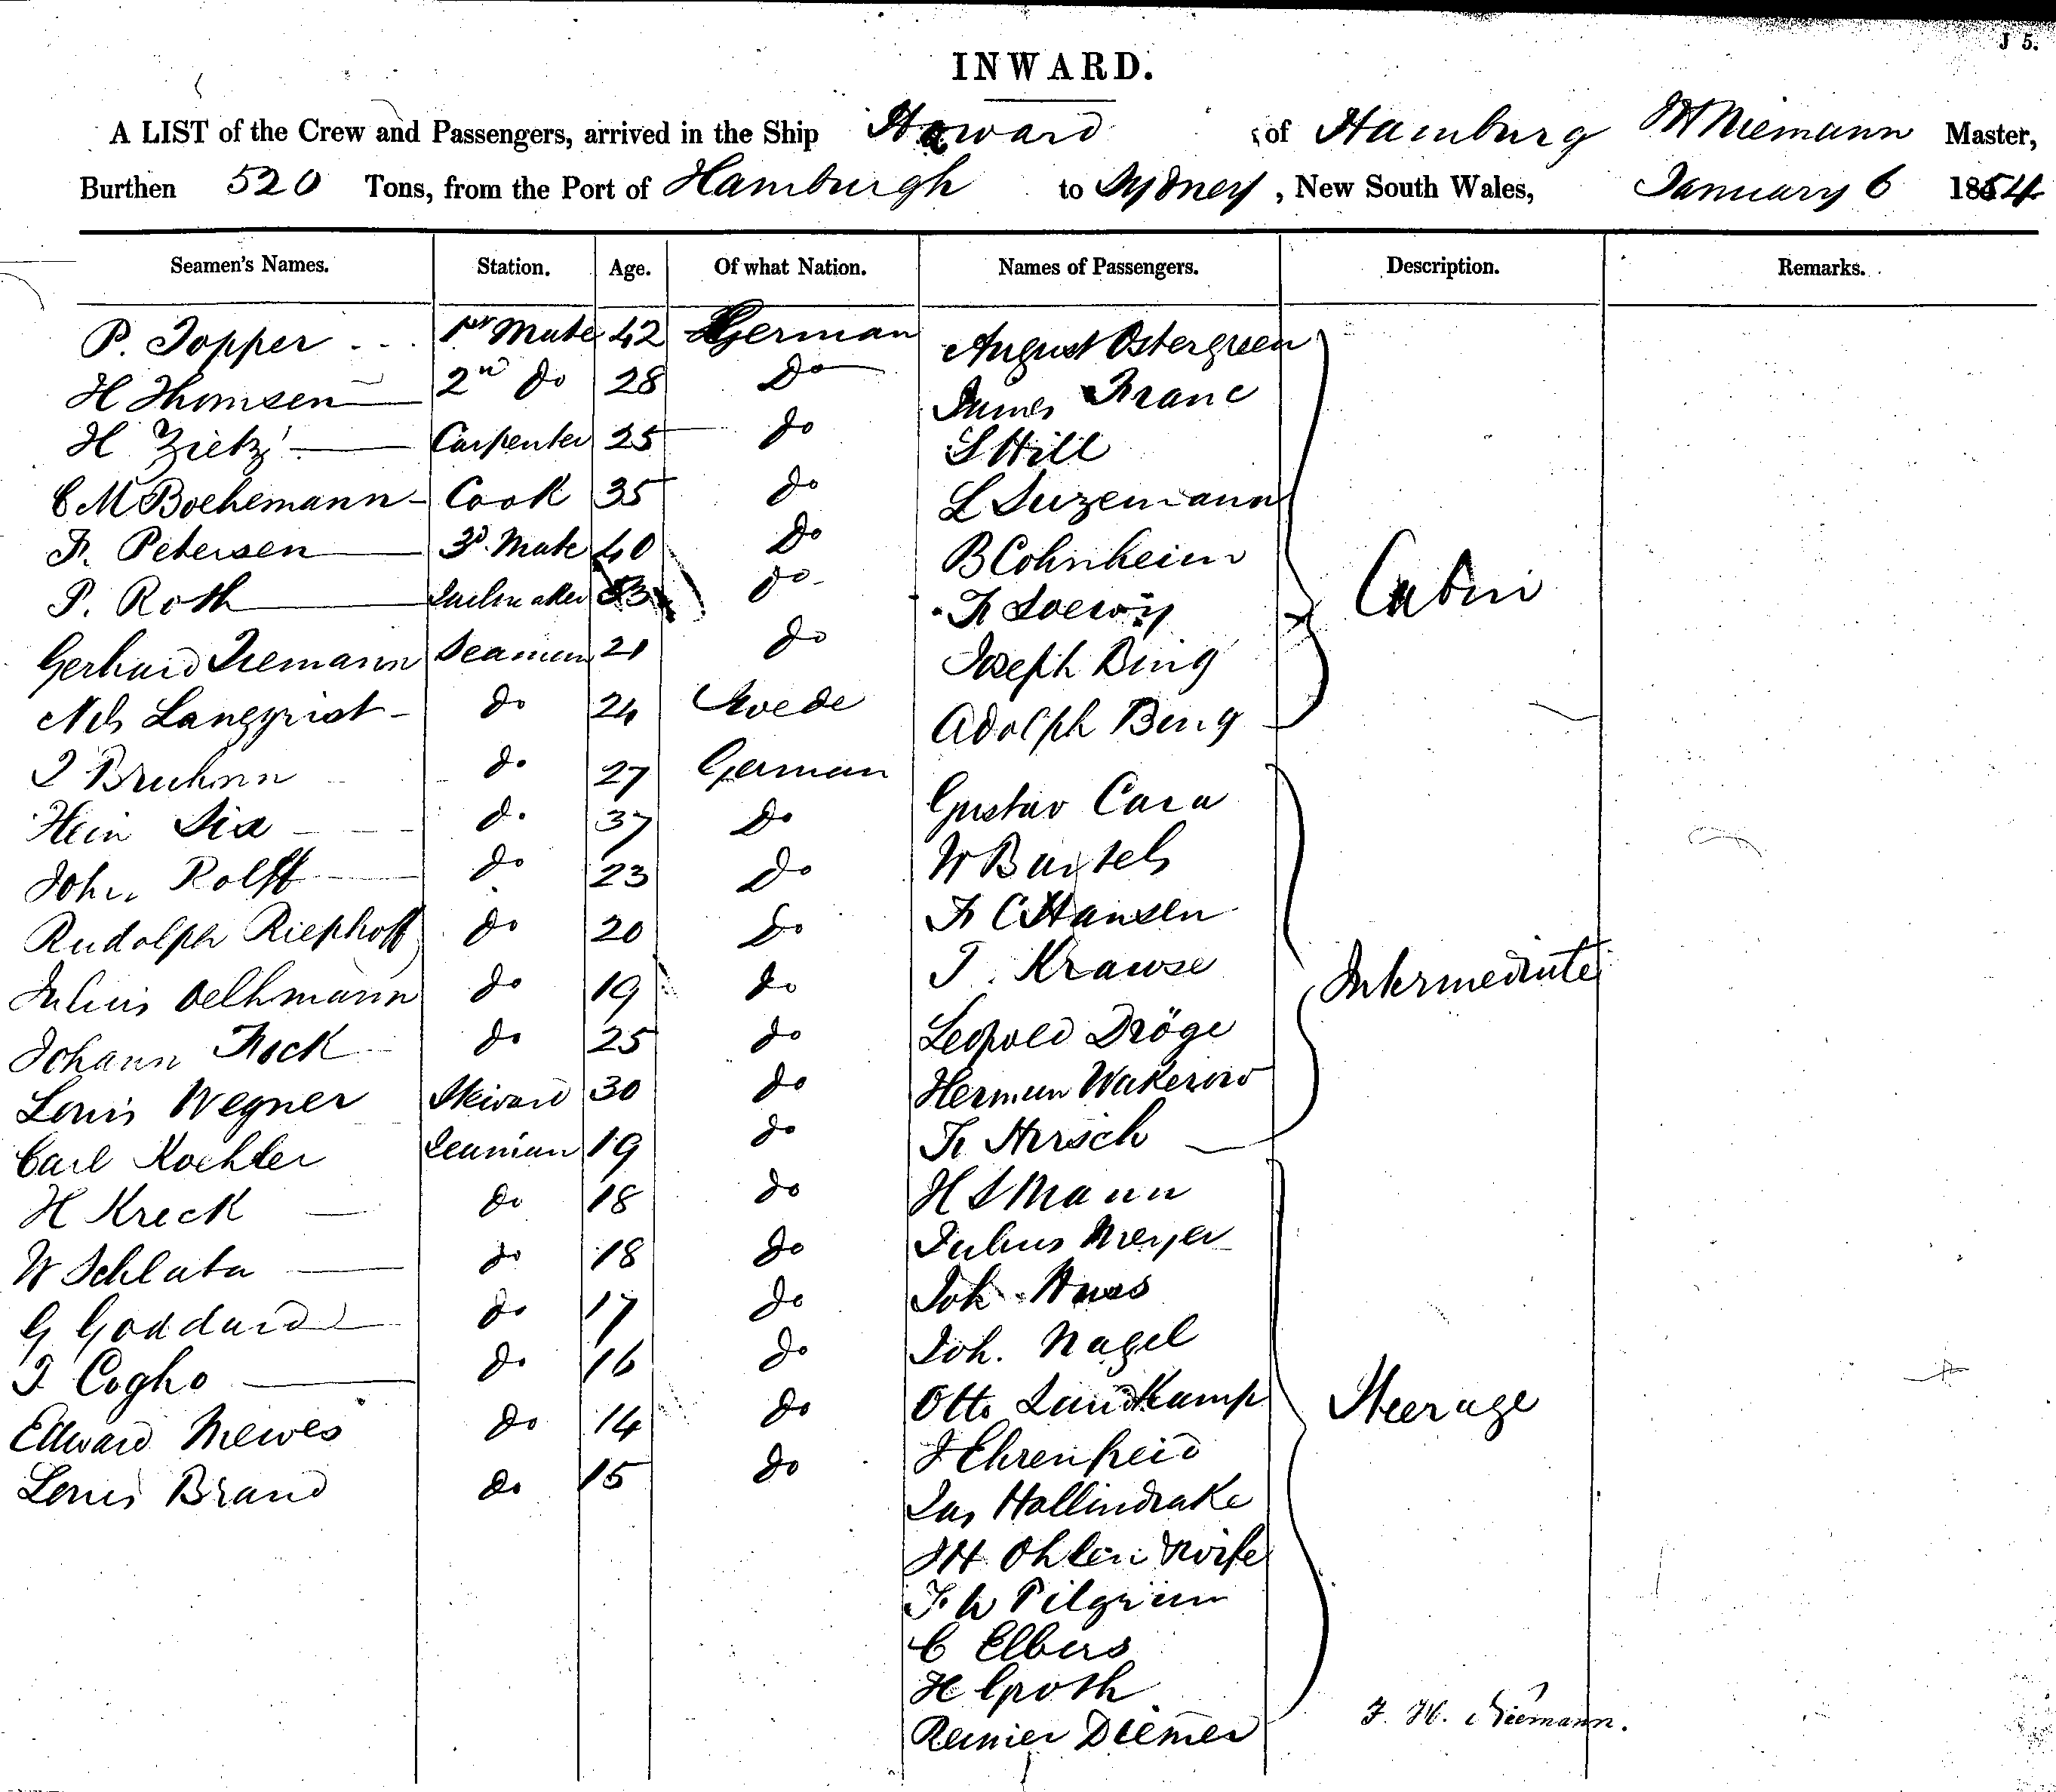 J 5.
INWARD.
A LIST of the Crew and Passengers, arrived in the Ship Howard of Hamburg Niemann Master,
Burthen 520 Tons, from the Port of Hamburgh to Sydney, New South Wales, January 6 1854
Seamen's Names. Station. Age. Of what Nation. Names of Passengers. Description. Remarks.
P. Topper 1st Mate 42 German August Ostergreen
H Thomsen 2nd do 28 Do James Franc
H Zietz Carpenter 25 do S Hill
C M Boehemann Cook 35 do L
F. Petersen 3d Mate 40 Do B Cohnheim Cabin
P. Roth Sailmaker do F Loewy
Gerhard Tiemann Seaman 21 do Joseph Bing
Nels Langqvist do 24 Swede Adolph Bing
J Bruhnn do 27 German Gustav Cara
Hein Sia do 37 Do W Bartels
John Rolff do 23 Do F C Hansen
Rudolph Riephoff do 20 Do T. Krause Intermediate
Julius Oelhmann do 19 do Leopold Dröge
Johann Fock do 25 do Herman Wakerow
Louis Wegner Steward 30 do F Hirsch
Carl Koehler Seaman 19 do H S Mann
H Kreck do 18 do Julius Meyer
W Schlata do 18 do Joh
G Goddard do 17 do Joh. Nagel
J Cogho do 16 do Otto Sundkamp Steerage
Edward Mewes do 14 do J Ehrenfreid
Louis Brand do 15 do Jas Hollindrake
J H Ohlen & wife
F. W Pilgrim
C Elbers
H Groth
Reinier Diemer
F. H. Niemann.